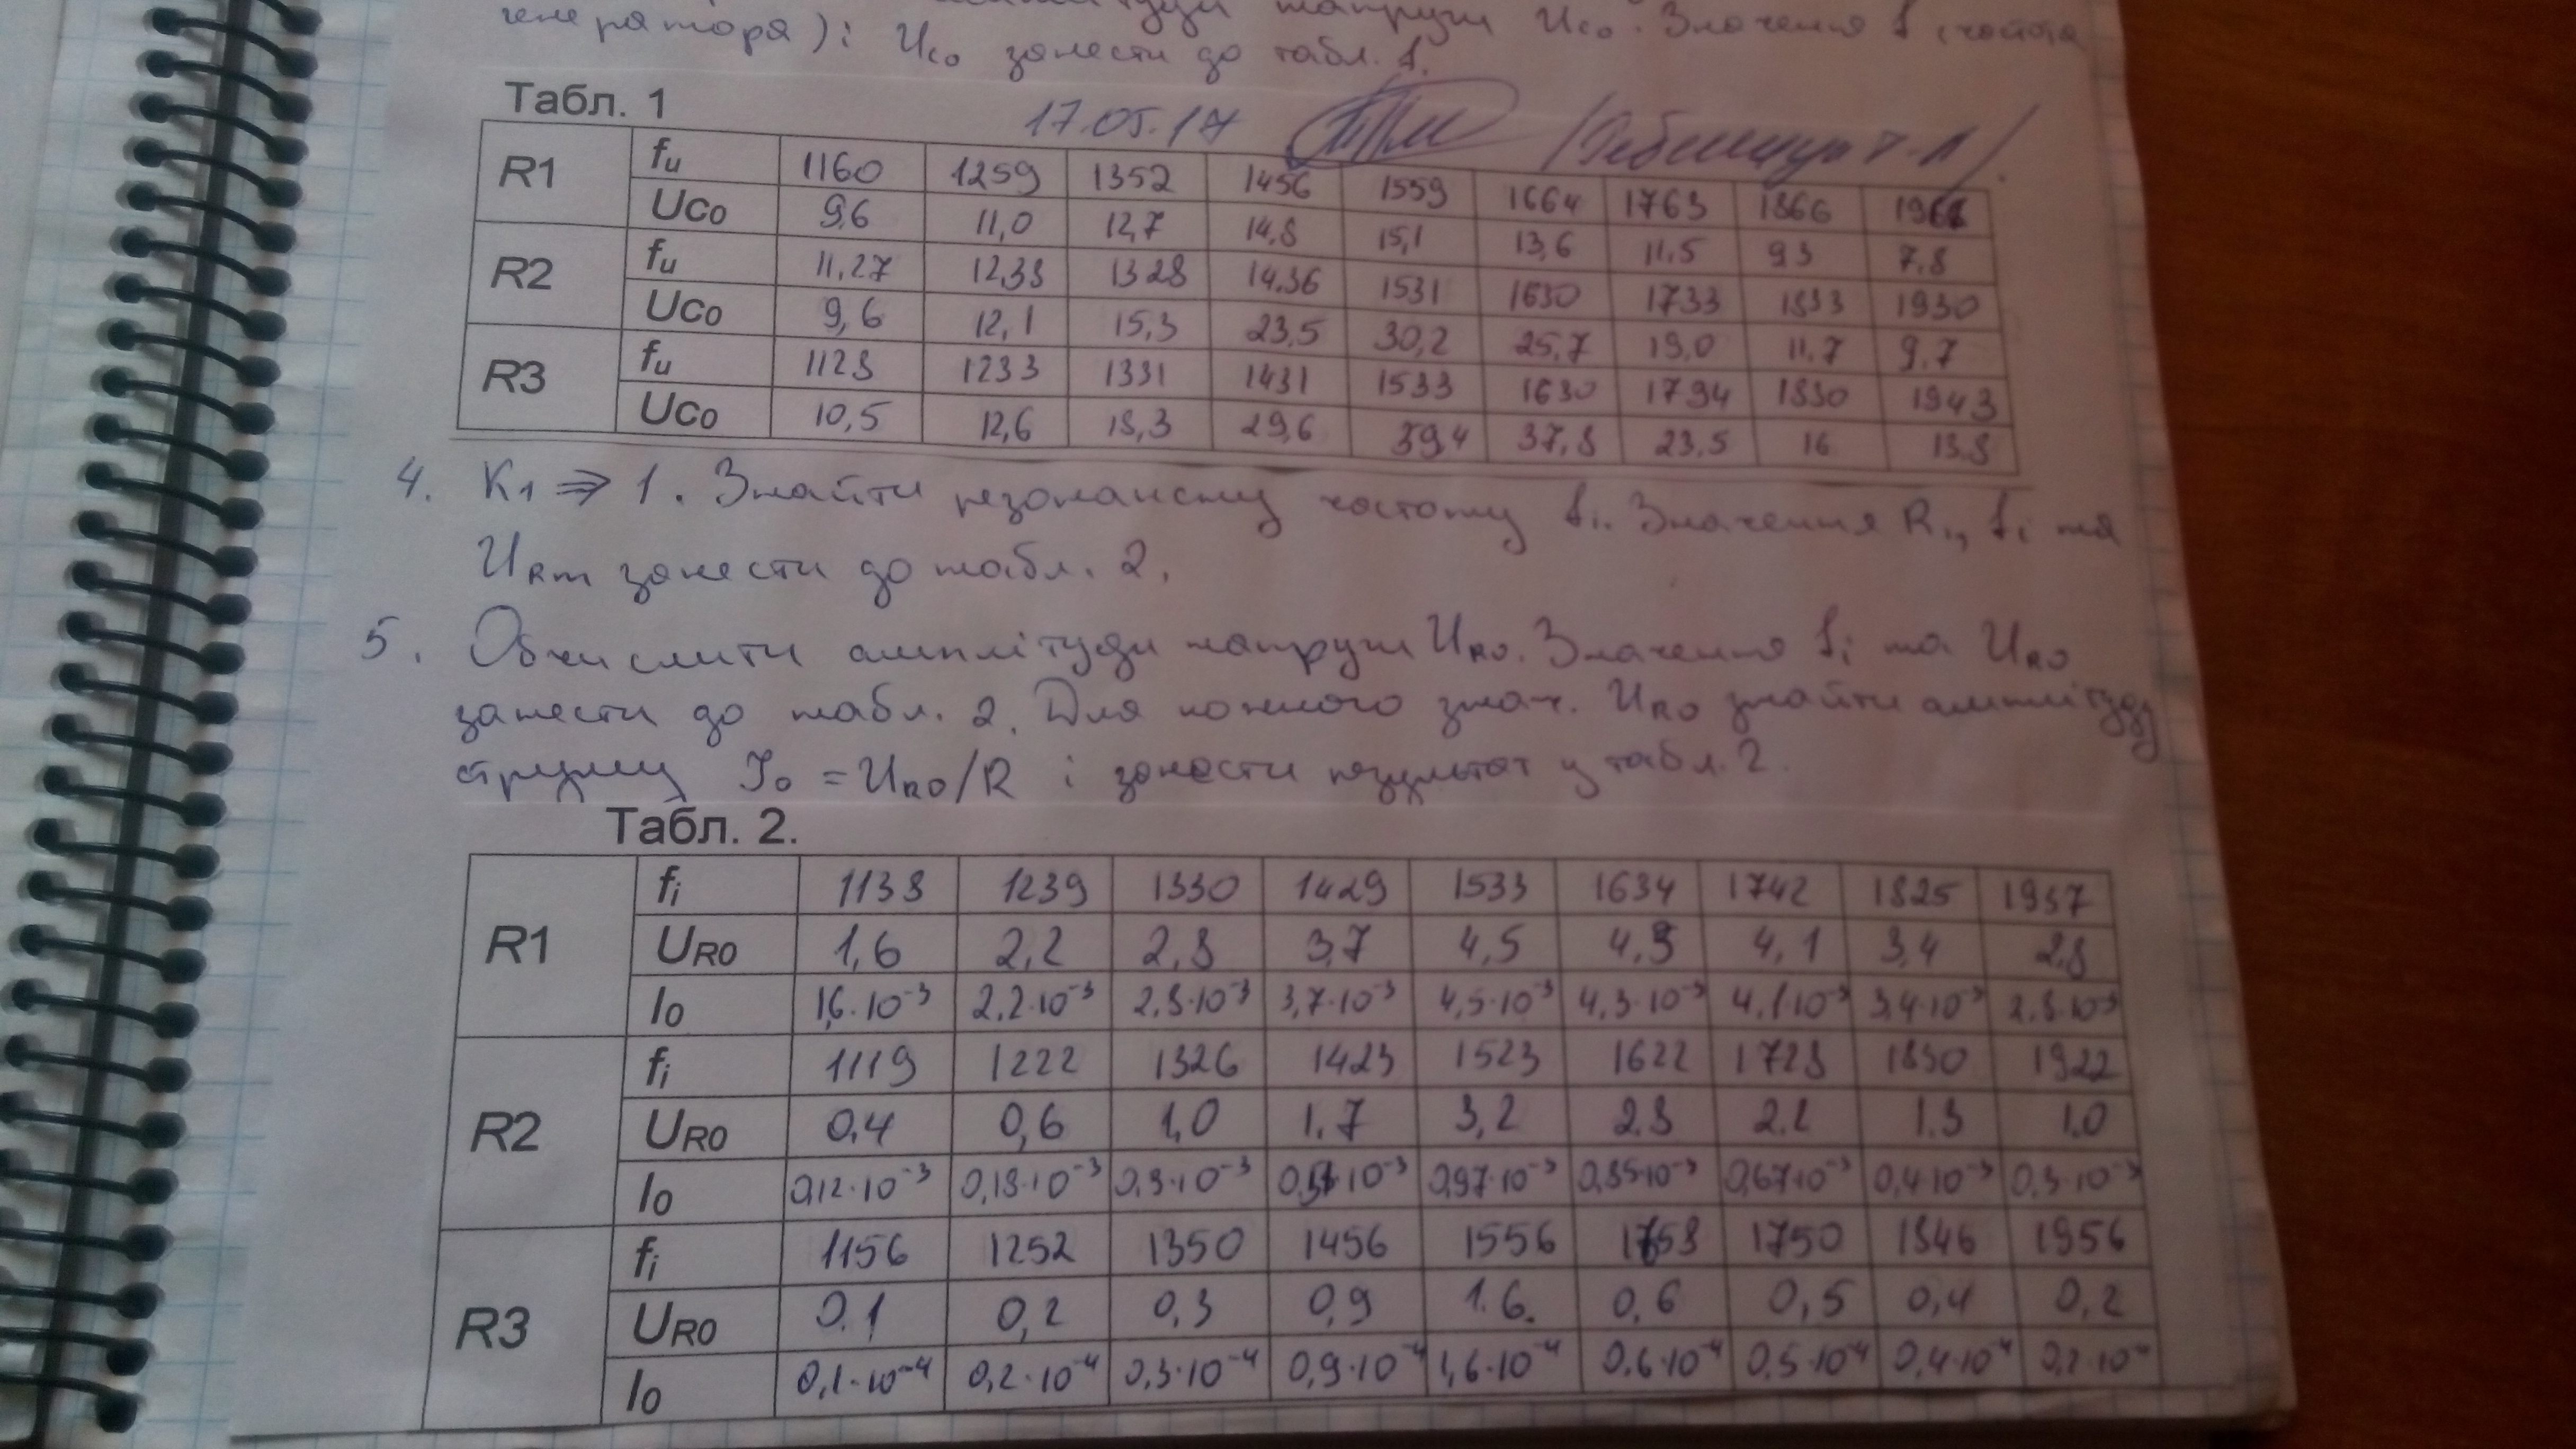 напруги Uco. Значення f (частота
генератора) і Uco занести до табл. 1.
Табл. 1
17.05.17
R1 fu 1160 1259 1352 1456 1559 1664 1763 1866
Uco 9,6 11,0 12,7 14,8 15,1 13,6 11,5 93 7,8
R2 fu 11.27 12.38 1328 14.36 1531 1630 1733 1833 1930
Uco 9,6 12,1 15,3 23,5 30,2 25,7 19,0 11,7 9,7
R3 fu 1128 1233 1331 1431 1533 1630 1794 1830 1943
Uco 10,5 12,6 18,3 29,6 39,4 37,8 23,5 16 13,8
4. K1 => 1. Знайти резонансну частоту fi. Значення Ri, fi та
URm занести до табл. 2.
5. Обчислити амплітуди напруги UR0. Значення fi та UR0
занести до табл. 2. Для кожного знач. UR0 знайти амплітуду
струму I0 = UR0/R і занести результат у табл. 2.
Табл. 2.
R1 fi 1138 1239 1330 1429 1533 1634 1742 1825 1937
UR0 1,6 2,2 2,8 3,7 4,5 4,3 4,1 3,4 2,8
I0 1,6·10⁻³ 2,2·10⁻³ 2,8·10⁻³ 3,7·10⁻³ 4,5·10⁻³ 4,3·10⁻³ 4,1·10⁻³ 3,4·10⁻³ 2,8·10⁻³
R2 fi 1119 1222 1326 1423 1523 1622 1728 1830 1922
UR0 0,4 0,6 1,0 1.7 3,2 2.8 2.2 1.3 1.0
I0 0,12·10⁻³ 0,18·10⁻³ 0,3·10⁻³ 0,97·10⁻³ 0,85·10⁻³ 0,67·10⁻³ 0,4·10⁻³ 0,3·10⁻³
R3 fi 1156 1252 1350 1456 1556 1750 1846 1956
UR0 0.1 0,2 0,3 0,9 1.6. 0,6 0,5 0,4 0,2
I0 0,1·10⁻⁴ 0,2·10⁻⁴ 0,3·10⁻⁴ 0,9·10⁻⁴ 1,6·10⁻⁴ 0,6·10⁻⁴ 0,5·10⁻⁴ 0,4·10⁻⁴ 0,2·10⁻⁴